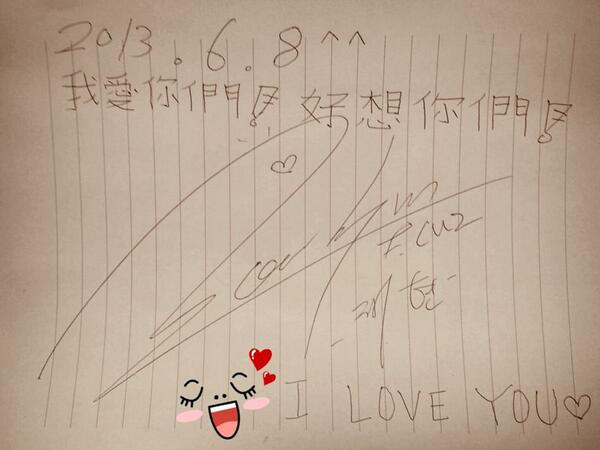 2013.6.8^^
我愛你們! 好想你們!
F.CUZ
-재현-
I LOVE YOU♡